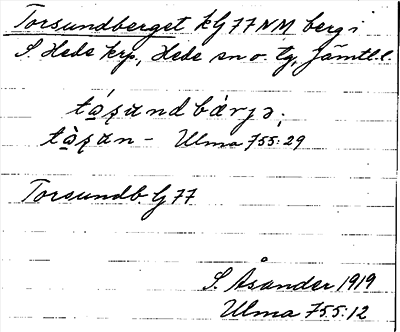 Torsundberget kG77NM berg i
S. Hede krp., Hede sn o. tg, Jämtl. l.
Ulma 755:29
Torsundb. G77
S. Åsander 1919
Ulma 755:12